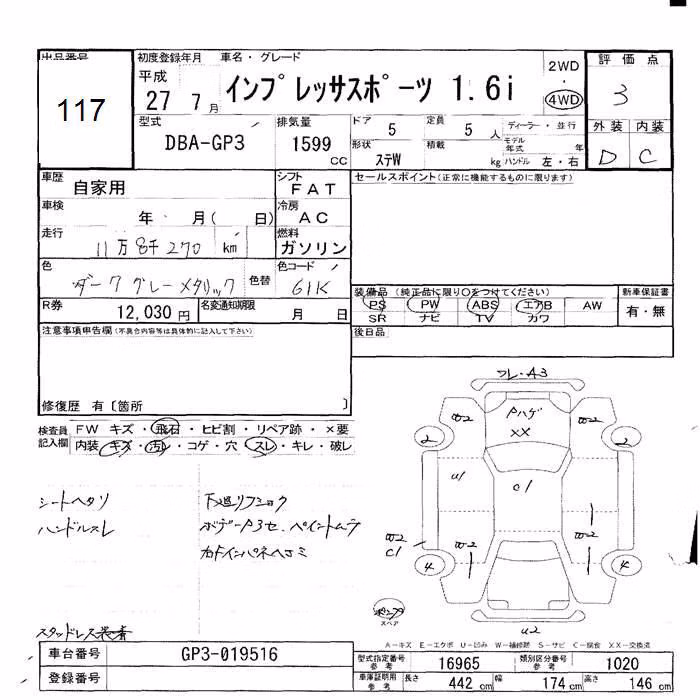 出品番号 初度登録年月 車名・グレード 評価点
117
平成 27 7月 インプレッサスポーツ 1.6i 2WD ・ 4WD 3
型式 排気量 ドア 5 定員 5人 ディーラー・並行 外装 内装
DBA-GP3 1599 CC 形状 ステW 積載 kg モデル年式 年 ハンドル 左・右 D C
車歴 自家用 シフト FAT セールスポイント(正常に機能するものに限ります)
車検 年 月( 日) 冷房 AC
走行 11万8千270 km 燃料 ガソリン
色 ダークグレーメタリック 色替 色コード 61K
装備品(純正品に限り○をつけてください) 新車保証書
PS PW ABS エアB AW 有・無
SR ナビ TV カワ
R券 12,030円 名変通知期限 月 日
後日品
注意事項申告欄(不具合内容等は具体的に記入して下さい)
修復歴 有〔箇所 〕
検査員記入欄 FW キズ・飛石・ヒビ割・リペア跡・×要
内装 キズ・汚レ・コゲ・穴・スレ・キレ・破レ
フレ・A3
Pハゲ
XX
W2 W2
2 2
U1 C1
W2 C1 W2 W2
4 4
シートヘタリ
ハンドルスレ
ペイントムラ
スタッドレス装着
スペア
U2
A-キズ E-エクボ U-凹み W-補修跡 S-サビ C-腐食 XX-交換済
車台番号 GP3-019516
登録番号
型式指定番号参考 16965 類別区分番号参考 1020
車庫証明用参考 長さ 442 cm 幅 174 cm 高さ 146 cm